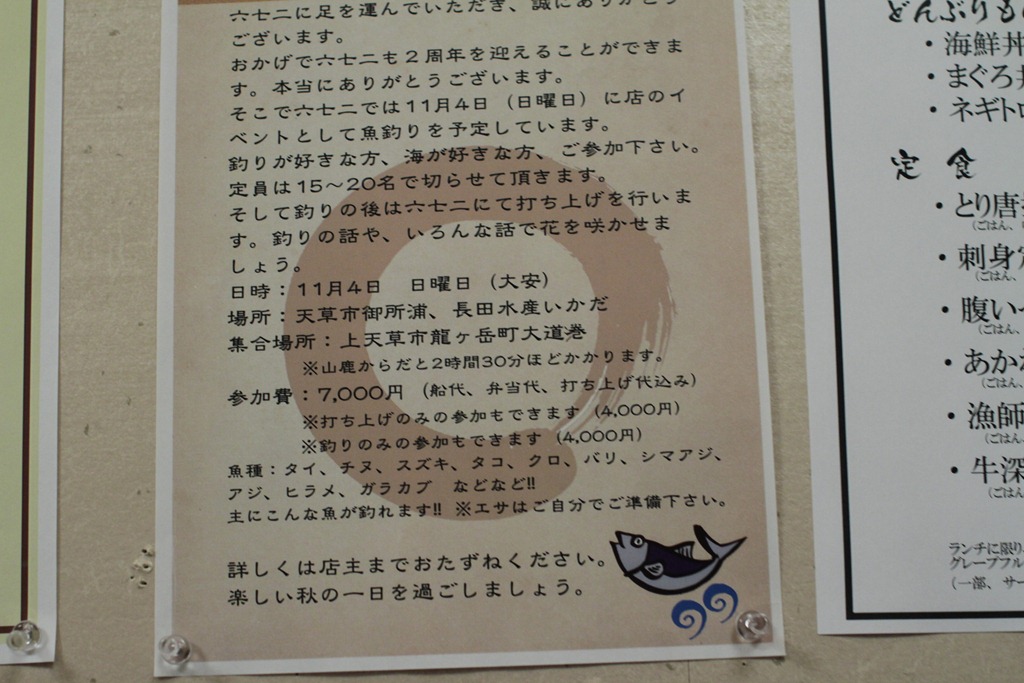 六七二に足を運んでいただき、誠にありがとう
ございます。
おかげで六七二も2周年を迎えることができま
す。本当にありがとうございます。
そこで六七二では11月4日（日曜日）に店のイ
ベントとして魚釣りを予定しています。
釣りが好きな方、海が好きな方、ご参加下さい。
定員は15〜20名で切らせて頂きます。
そして釣りの後は六七二にて打ち上げを行いま
す。釣りの話や、いろんな話で花を咲かせま
しょう。
日時：11月4日　日曜日（大安）
場所：天草市御所浦、長田水産いかだ
集合場所：上天草市龍ヶ岳町大道巻
※山鹿からだと2時間30分ほどかかります。
参加費：7,000円（船代、弁当代、打ち上げ代込み）
※打ち上げのみの参加もできます（4,000円）
※釣りのみの参加もできます（4,000円）
魚種：タイ、チヌ、スズキ、タコ、クロ、バリ、シマアジ、
アジ、ヒラメ、ガラカブ　などなど!!
主にこんな魚が釣れます!! ※エサはご自分でご準備下さい。
詳しくは店主までおたずねください。
楽しい秋の一日を過ごしましょう。
どんぶりも
・海鮮丼
・まぐろ丼
・ネギトロ
定食
・とり唐
（ごはん、
・刺身定
（ごはん、
・腹い
（ごはん、
・あか
（ごはん、
・漁師
（ごはん、
・牛深
（ごはん
ランチに限り
グレープフル
（一部、サー